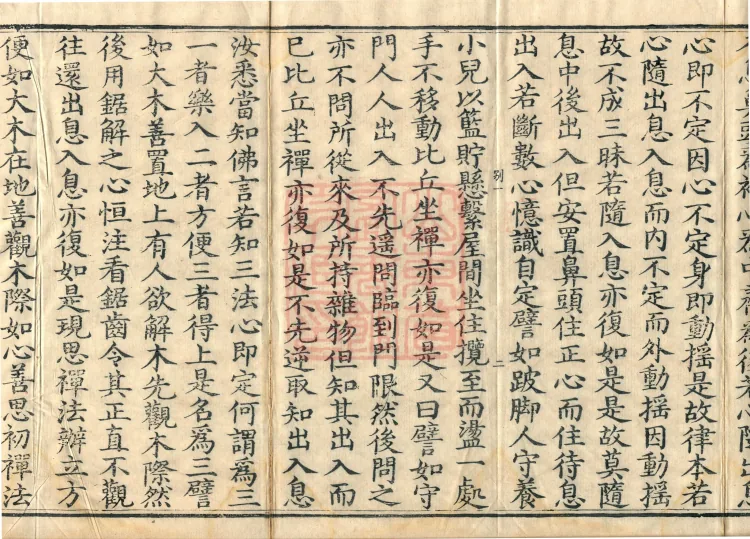 心即不定因心不定身即動搖是故律本若
心隨出息入息而内不定而外動搖因動搖
故不成三昧若隨入息亦復如是是故莫隨
息中後出入但安置鼻頭住正心而住待息
出入若斷數心憶識自定譬如跛脚人守養
列一 二
小兒以籃貯懸繫屋間坐住攬至而盪一處
手不移動比丘坐禪亦復如是又曰譬如守
門人人出入不先遥問臨到門限然後問之
亦不問所從來及所持雜物但知其出入而
已比丘坐禪亦復如是不先逆取知出入息
汝悉當知佛言若知三法心即定何謂爲三
一者樂入二者方便三者得上是名爲三譬
如大木善置地上有人欲解木先觀木際然
後用鋸解之心恒注看鋸齒令其正直不觀
往還出息入息亦復如是現思禪法辦立方
便如大木在地善觀木際如心善思初禪法